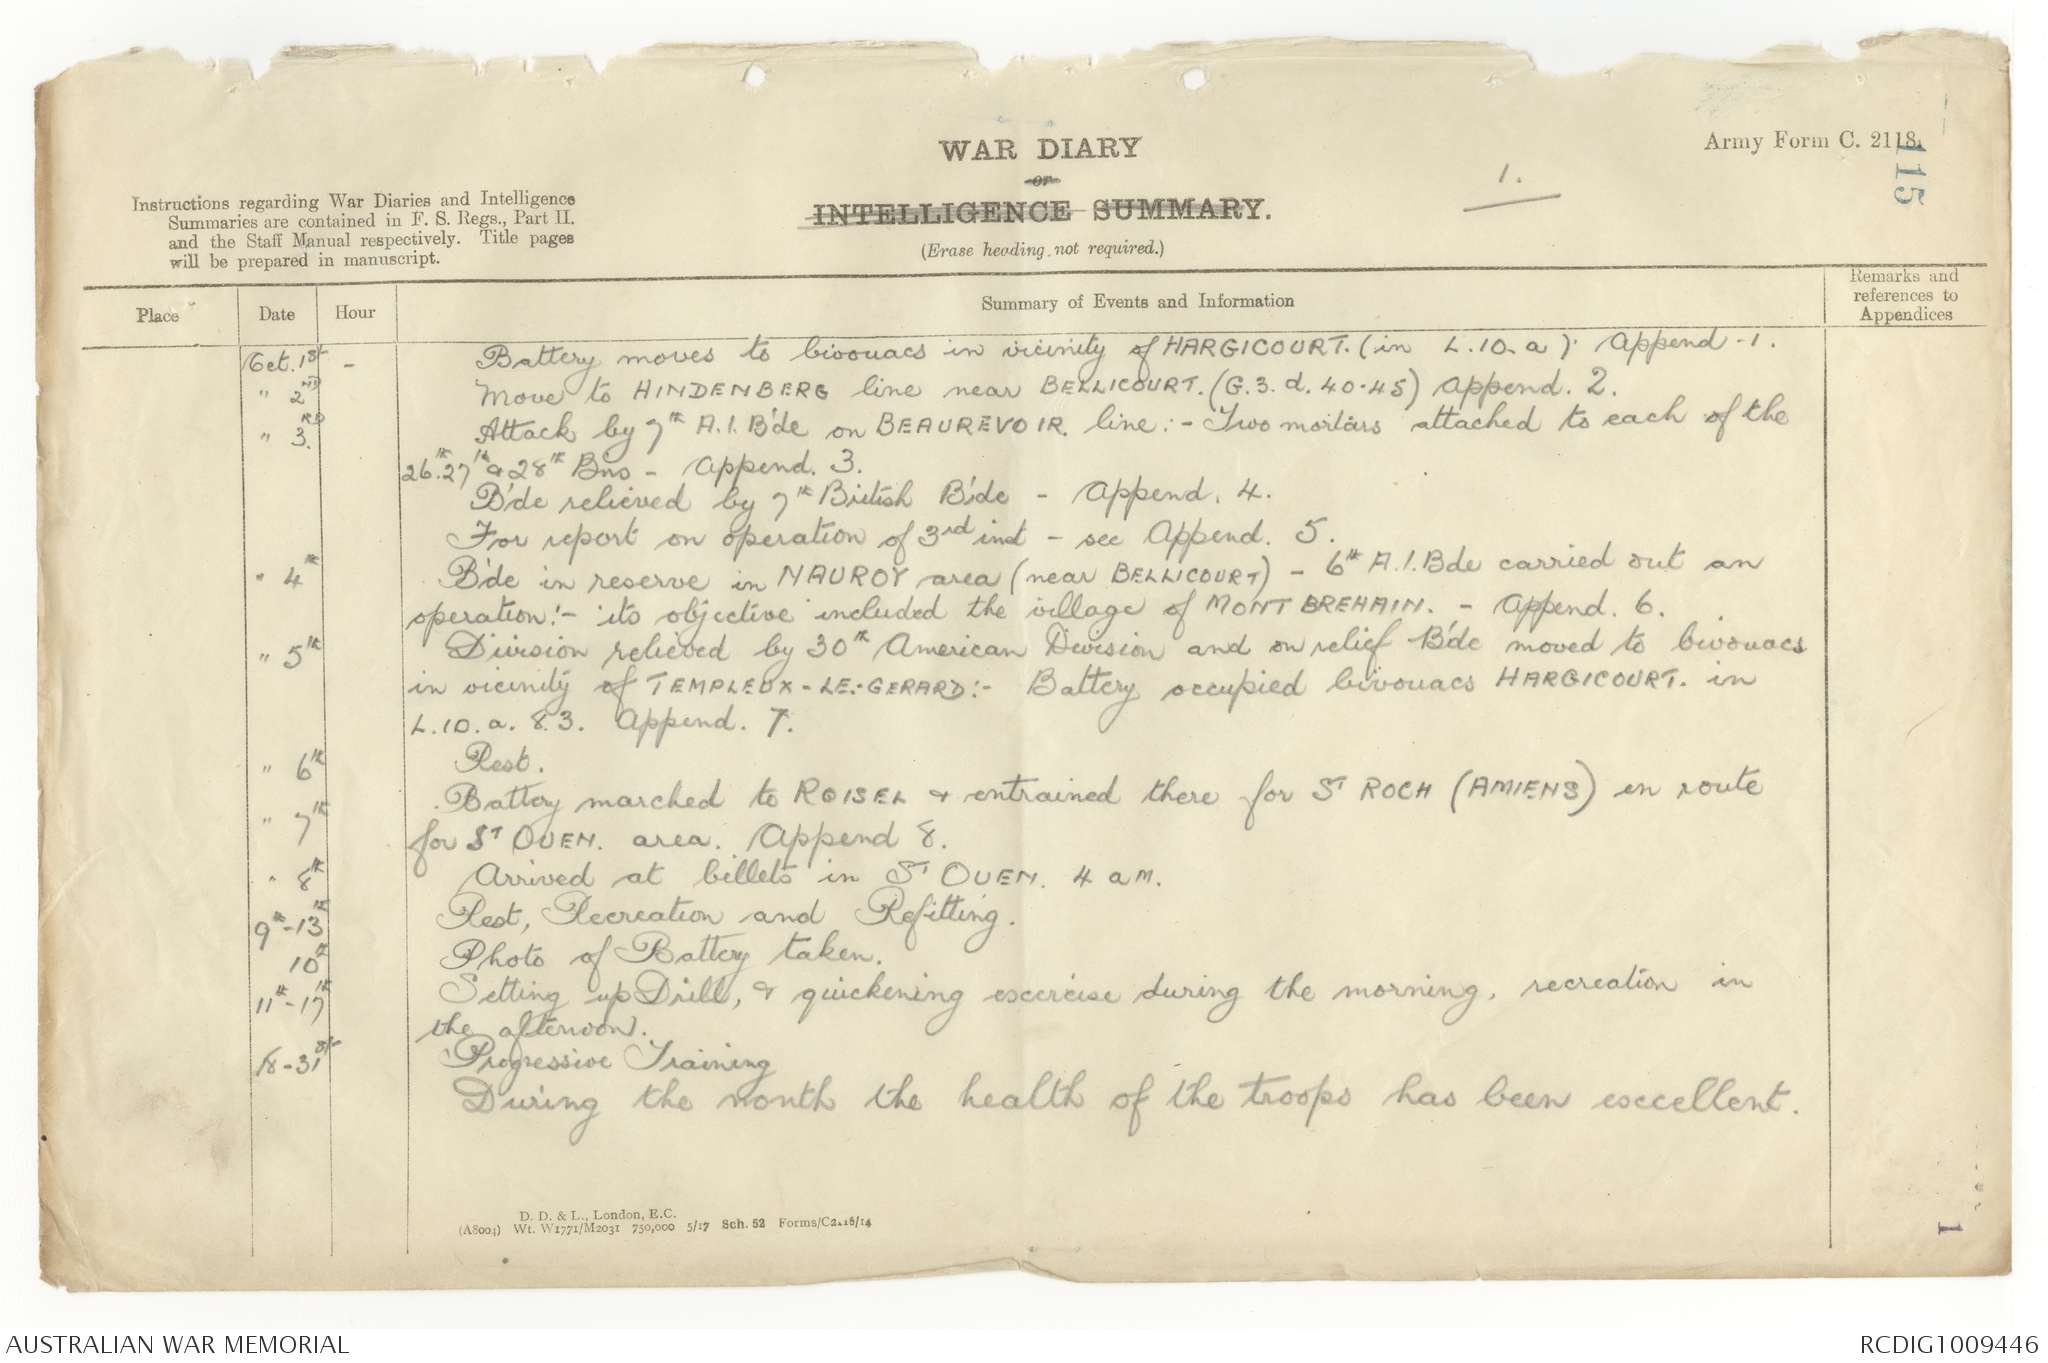 Army Form C. 2118.
115
WAR DIARY
or
INTELLIGENCE SUMMARY.
(Erase heading not required.)
1.
Instructions regarding War Diaries and Intelligence
Summaries are contained in F. S. Regs., Part II.
and the Staff Manual respectively. Title pages
will be prepared in manuscript.
Place Date Hour Summary of Events and Information Remarks and references to Appendices
Oct. 1st - Battery moves to bivouacs in vicinity of HARGICOURT. (in L.10.a). Append - 1.
" 2ND Move to HINDENBERG line near BELLICOURT. (G.3.d.40-45) Append. 2.
" 3.RD Attack by 7th A.I. B'de on BEAUREVOIR line:- Two mortars attached to each of the
26th.27th & 28th Bns - Append. 3.
B'de relieved by 7th British B'de - Append. 4.
For report on operation of 3rd inst - see Append. 5.
" 4th B'de in reserve in NAUROY area (near BELLICOURT) - 6th A.I. Bde carried out an
operation:- its objective included the village of MONT BREHAIN. - Append. 6.
" 5th Division relieved by 30th American Division and on relief B'de moved to bivouacs
in vicinity of TEMPLEUX-LE-GERARD:- Battery occupied bivouacs HARGICOURT. in
L.10.a. 8.3. Append. 7.
" 6th Rest.
" 7th Battery marched to ROISEL & entrained there for ST ROCH (AMIENS) en route
for ST OUEN. area. Append 8.
" 8th Arrived at billets in ST OUEN. 4 am.
9th-13th Rest, Recreation and Refitting.
10th Photo of Battery taken.
11th-17th Setting up Drill, & quickening excercise during the morning, recreation in
the afternoon.
18-31st Progressive Training
During the month the health of the troops has been excellent.
D. D. & L., London, E.C.
(A8004) Wt. W1771/M2031 750,000 5/17 Sch. 52 Forms/C2118/14
1
AUSTRALIAN WAR MEMORIAL
RCDIG1009446